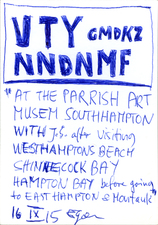 VTY GMDKZ
NNDNMF
"AT THE PARRISH ART
MUSEM SOUTHHAMPTON
WITH J.S. after visiting
WESTHAMPTONS BEACH
SHINNECOCK BAY
HAMPTON BAY before going
to EAST HAMPTON & Montauk"
16 IX 15